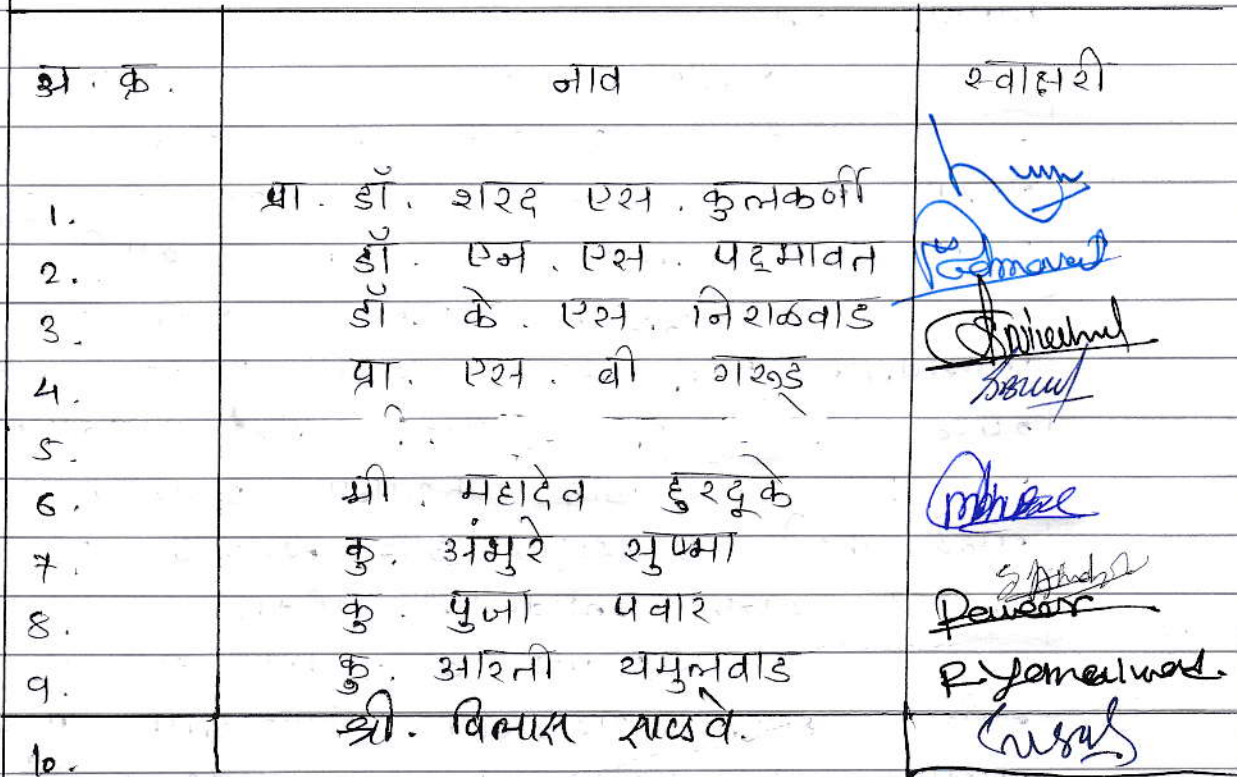 अ. क्र. नाव स्वाक्षरी
1. प्रा. डॉ. शरद एस. कुलकर्णी
2. डॉ. एन. एस. पद्मावत Padmavat
3. डॉ. के. एस. निराळवाड
4. प्रा. एस. बी. गरूड
5.
6. श्री. महादेव हुरदूके
7. कु. अंभुरे सुष्मा
8. कु. पुजा पवार Pawar
9. कु. आरती यमुलवाड R. Yamalwad.
10. श्री. विलास साळवे.